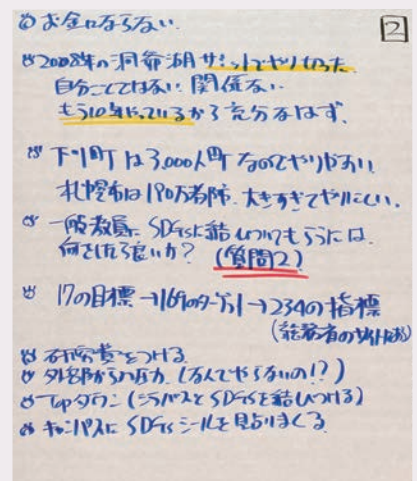 2
お金にならない.
2008年の洞爺湖サミットでやりきった
自分ごとではない. 関係ない.
もう10年やっているから充分なはず.
下川町は3,000人町なのでやりやすい
札幌市は190万都市. 大きすぎてやりにくい.
一般教員に SDGsに結びつけてもらうには.
何をしたら良いか? (質問2)
17の目標→169のターゲット→234の指標
(総務省のサイトにある)
研究費をつける
外部から圧力. (なんでやらないの!?)
Topダウン (シラバスとSDGsを結びつける)
キャンパスに SDGsシールを見はりまくる